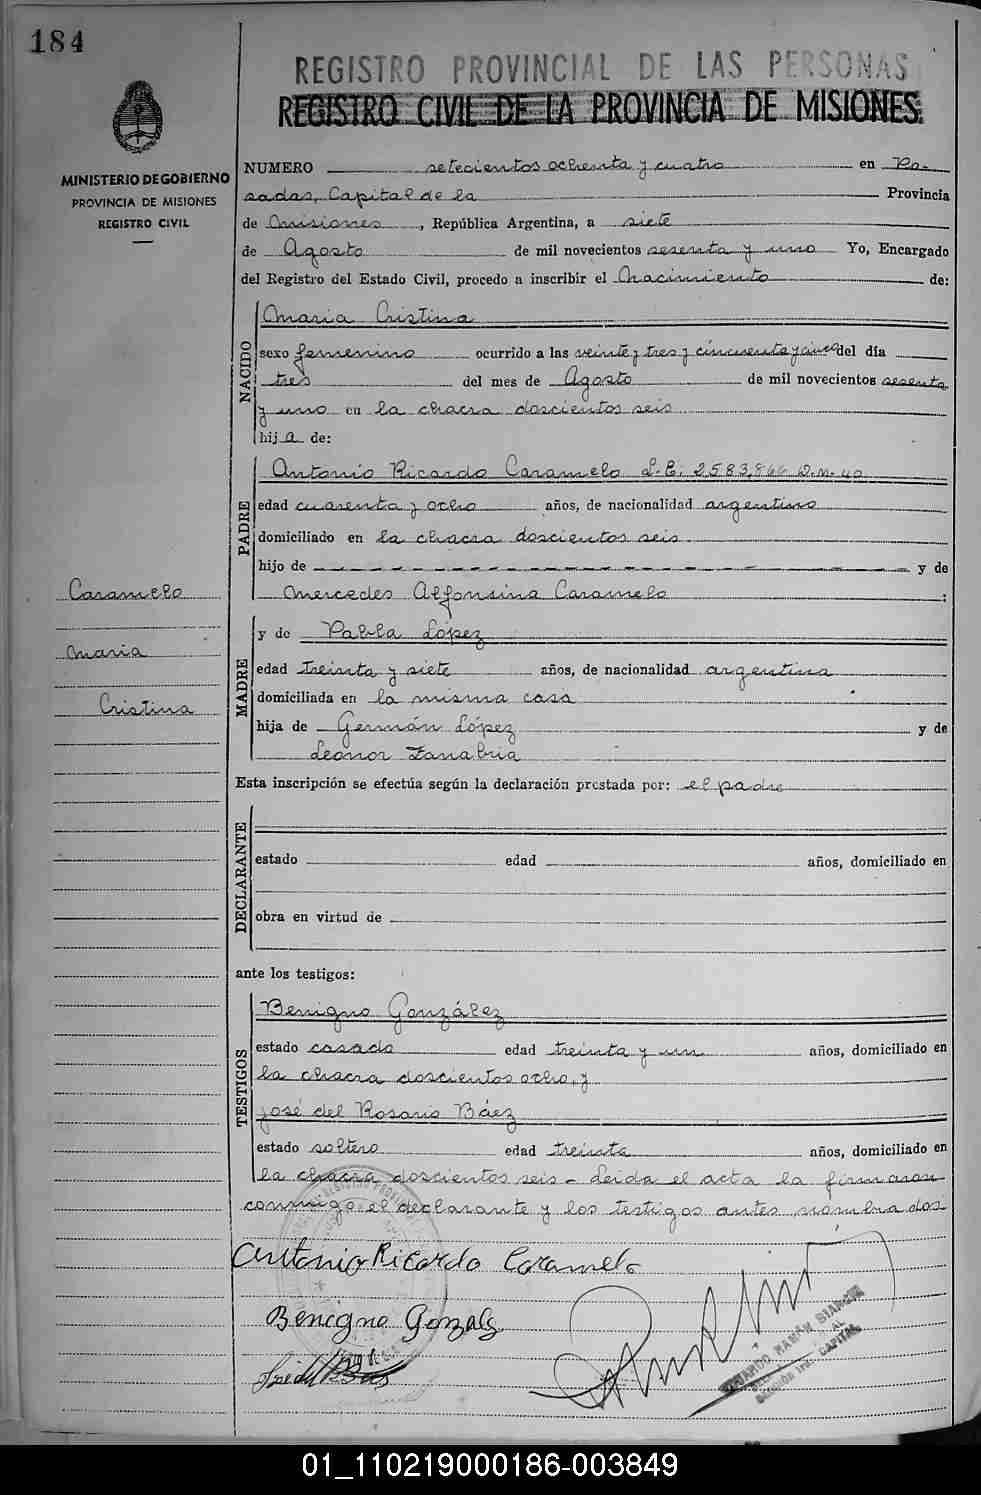 184
REGISTRO PROVINCIAL DE LAS PERSONAS
REGISTRO CIVIL DE LA PROVINCIA DE MISIONES
MINISTERIO DE GOBIERNO
PROVINCIA DE MISIONES
REGISTRO CIVIL
NUMERO setecientos ochenta y cuatro en Po-
sadas, Capital de la Provincia
de Misiones, República Argentina, a siete
de Agosto de mil novecientos sesenta y uno Yo, Encargado
del Registro del Estado Civil, procedo a inscribir el Nacimiento de:
NACIDO
Maria Cristina
sexo femenino ocurrido a las veinte y tres y cincuenta y cinco del día
tres del mes de Agosto de mil novecientos sesenta
y uno en la chacra doscientos seis
hija de:
PADRE
Antonio Ricardo Caramelo L.E. 2583,866 D.M. 40
edad cuarenta y ocho años, de nacionalidad argentino
domiciliado en la chacra doscientos seis
hijo de - - - - - - - - - - y de
Mercedes Alfonsina Caramelo :
Caramelo
Maria
Cristina
MADRE
y de Pabla López
edad treinta y siete años, de nacionalidad argentina
domiciliada en la misma casa
hija de Germán López y de
Leonor Zanabria
Esta inscripción se efectúa según la declaración prestada por: el padre
DECLARANTE
estado edad años, domiciliado en
obra en virtud de
ante los testigos:
TESTIGOS
Benigno González
estado casado edad treinta y un años, domiciliado en
la chacra doscientos ocho, y
José del Rosario Báez
estado soltero edad treinta años, domiciliado en
la chacra doscientos seis - Leida el acta la firmaron
conmigo el declarante y los testigos antes nombrados
Antonio Ricardo Caramelo
Benigno Gonzalz
RAMÓN
CAPITAL
01_110219000186-003849